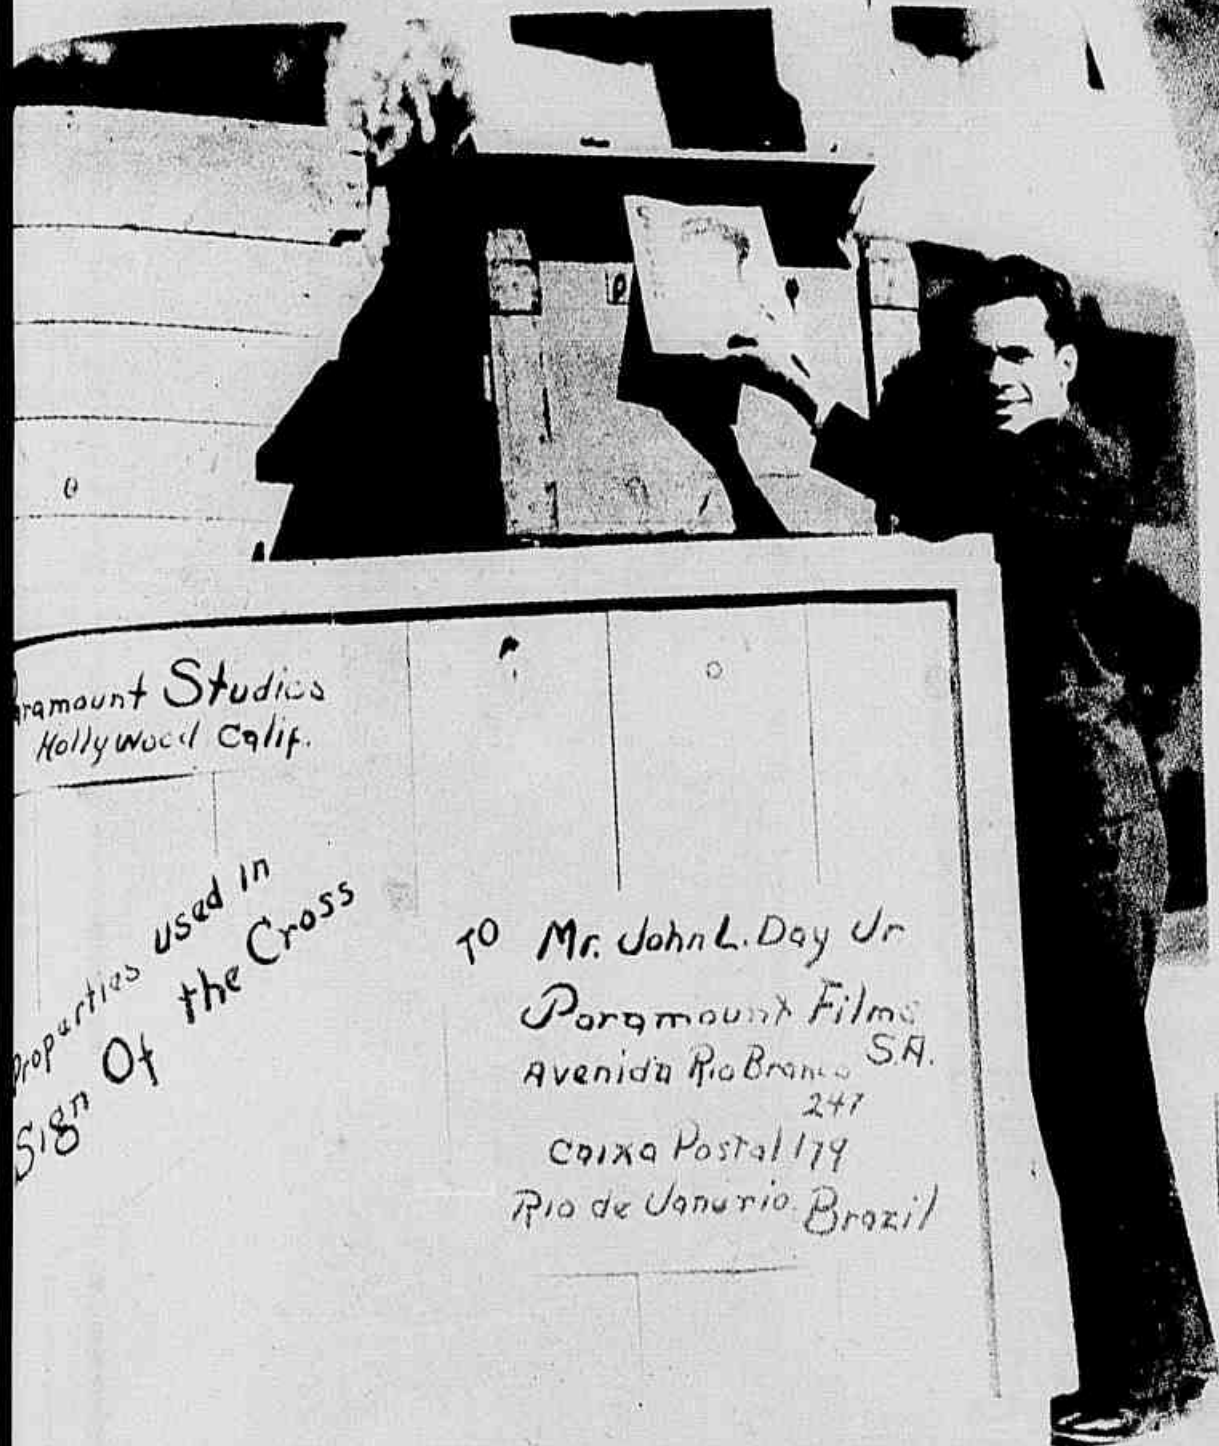 Paramount Studios
Hollywood Calif.
Properties used in
Sign Of the Cross
TO Mr. John L. Day Jr
Paramount Films
S.A.
Avenida Rio Branco
247
Caixa Postal 179
Rio de Janurio. Brazil